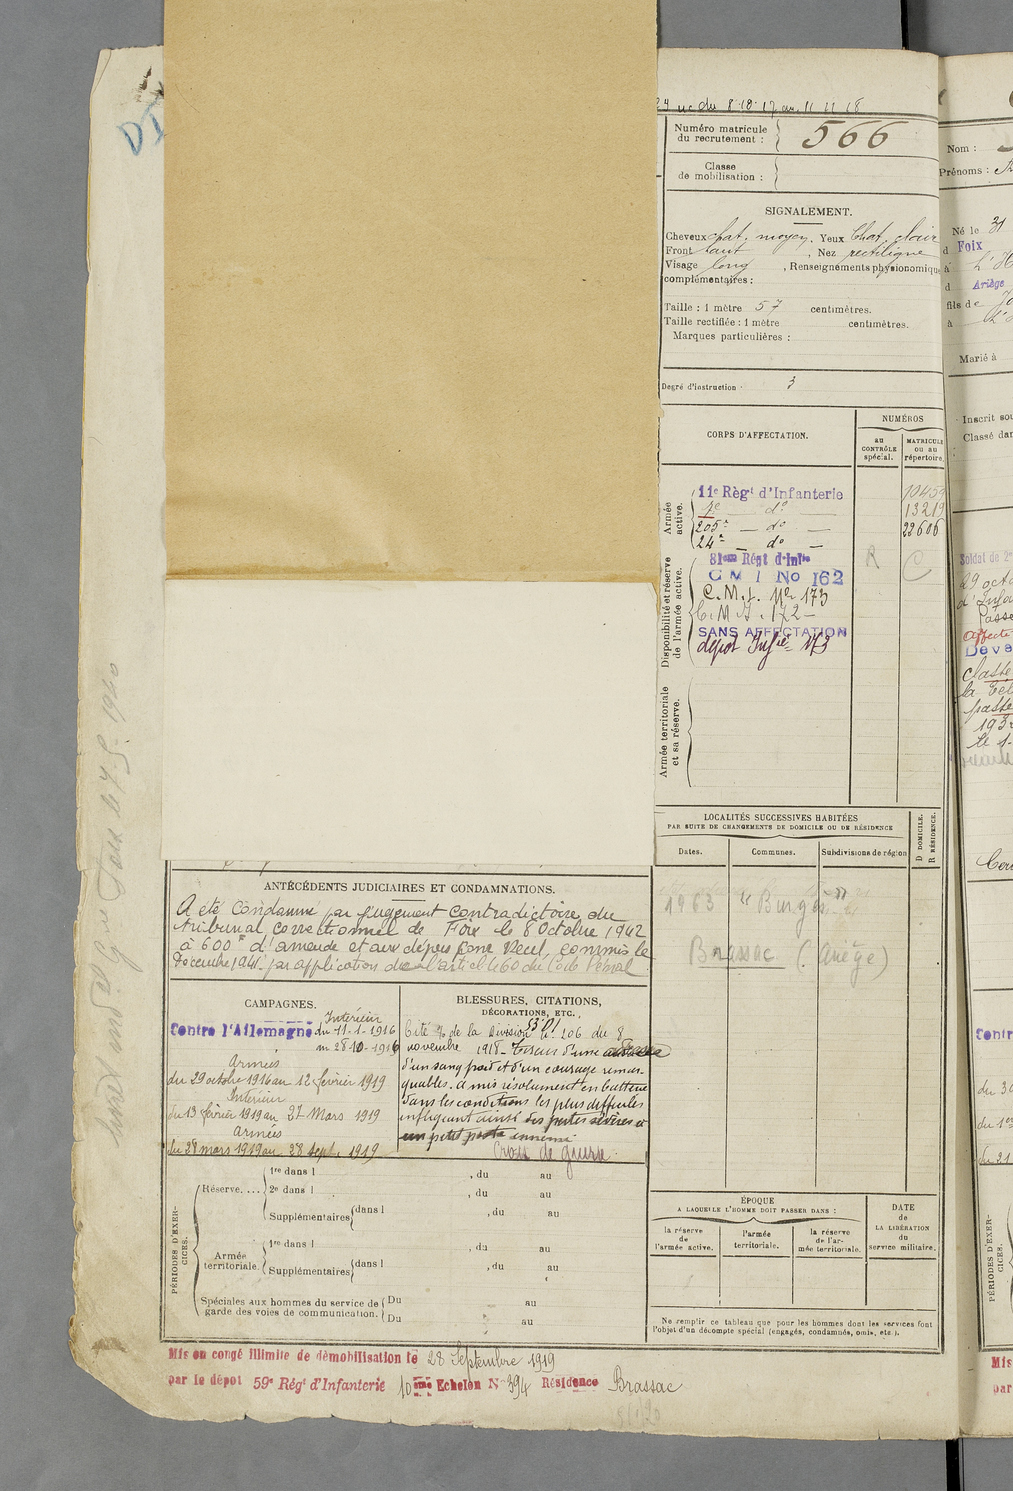 du 8.10.17 au 11 11 18
Numéro matricule du recrutement : 566
Classe de mobilisation :
SIGNALEMENT.
Cheveux chat. moyen. Yeux Chat. clair
Front haut , Nez rectiligne
Visage long , Renseignements physionomique
complémentaires :
Taille : 1 mètre 57 centimètres.
Taille rectifiée : 1 mètre centimètres.
Marques particulières :
Degré d'instruction : 3
CORPS D'AFFECTATION.
NUMÉROS
AU CONTRÔLE spécial.
MATRICULE ou au répertoire.
Armée active.
11e Régt d'Infanterie
do 13219
205e — do — 22606
24e — do —
Disponibilité et réserve de l'armée active.
81eme Régt d'Infie
C M I No 162
C. M. I. No 173
C. M. I. 172 -
SANS AFFECTATION
dépôt Infie 173
R C
Armée territoriale et sa réserve.
LOCALITÉS SUCCESSIVES HABITÉES
PAR SUITE DE CHANGEMENTS DE DOMICILE OU DE RÉSIDENCE
Dates. Communes. Subdivisions de région
D DOMICILE.
R RÉSIDENCE.
1963
Brassac (Ariège)
ANTÉCÉDENTS JUDICIAIRES ET CONDAMNATIONS.
A été condamné par jugement contradictoire du
tribunal correctionnel de Foix le 8 Octobre 1942
à 600f d'amende et aux dépens pour Recel, commis le
Décembre 1941 par application de l'article 460 du Code Pénal
CAMPAGNES.
Intérieur
Contre l'Allemagne du 11-1-1916
au 28 10-1916
Armées
du 29 octobre 1916 au 12 février 1919
Intérieur
du 13 février 1919 au 27 Mars 1919
Armées
du 28 mars 1919 au 28 Sept. 1919
BLESSURES, CITATIONS,
DÉCORATIONS, ETC.
Cité à l'o de la Division No 206 du 8
novembre 1918 -
d'un sang froid et d'un courage remar-
quables. a mis résolument en batterie
dans les conditions les plus difficiles
infligeant ainsi des pertes sévères à
un petit poste ennemi
Croix de guerre.
PÉRIODES D'EXERCICES.
Réserve....
1re dans l , du au
2e dans l , du au
Supplémentaires dans l , du au
Armée territoriale.
1re dans l , du au
Supplémentaires dans l , du au
Spéciales aux hommes du service de garde des voies de communication.
Du au
Du au
ÉPOQUE
A LAQUELLE L'HOMME DOIT PASSER DANS :
la réserve de l'armée active.
l'armée territoriale.
la réserve de l'armée territoriale.
DATE de LA LIBÉRATION du service militaire.
Ne remplir ce tableau que pour les hommes dont les services font
l'objet d'un décompte spécial (engagés, condamnés, omis, etc.).
Mis en congé illimité de démobilisation le 28 Septembre 1919
par le dépôt 59e Régt d'Infanterie 10eme Echelon No 394 Résidence Brassac
Nom :
Prénoms :
Né le 31
Foix
Ariège
fils de
à
Marié à
Inscrit sou
Classé dan
Soldat de 2e
29 octo
d'Infa
passé
affecté
classé
passé
le 1-
Contr
du 3
du 1er
du 21
PÉRIODES D'EXERCICES.
Mis
par